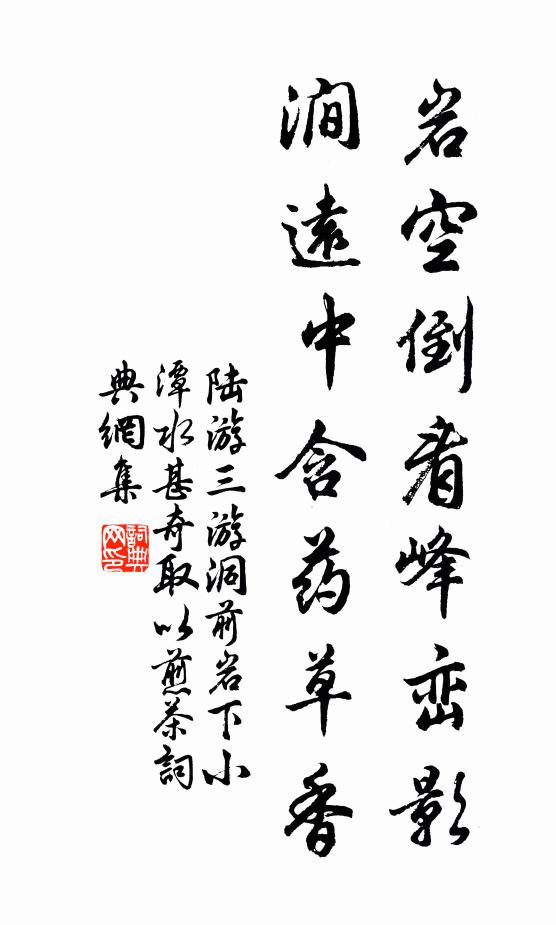 岩空倒看峰峦影
涧遠中含药草香
陆游三游洞前岩下小
潭水甚奇取以煎茶詞
典網集
詞典
网印